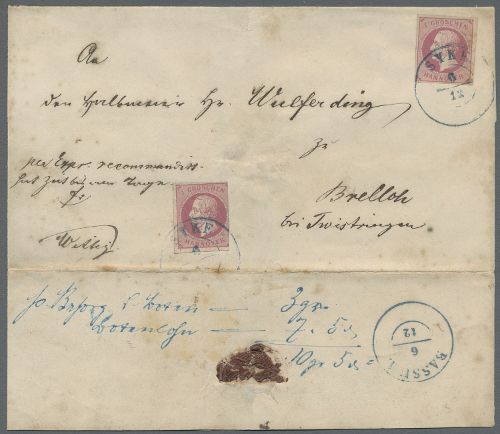 1 GROSCHEN
HANNOVER
SYKE
6
12
An
den Halbmeier Hr. Wulferding
zu
per Expr. recommandirt.
Brelloh
bei Twistringen
1 GROSCHEN
HANNOVER
SYKE
6
3 gr
Botenlohn — 7. 5
10 gr 5
BASSUM
6
12